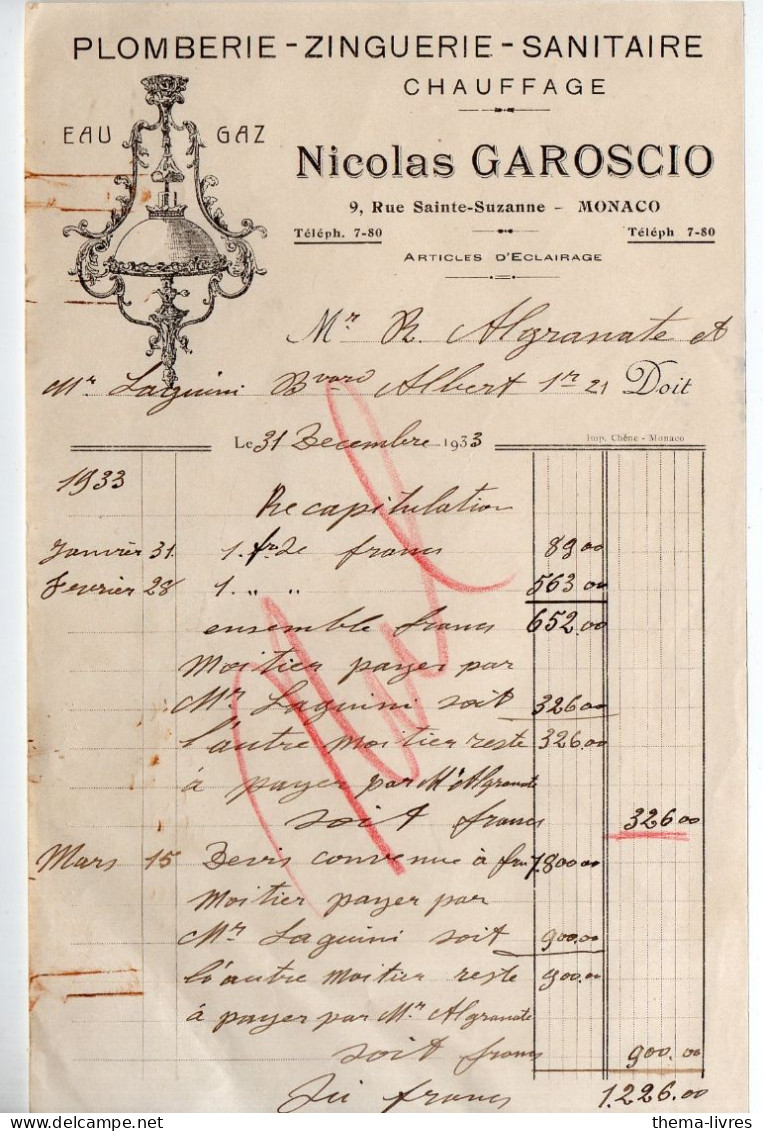 PLOMBERIE - ZINGUERIE - SANITAIRE
CHAUFFAGE
EAU GAZ
Nicolas GAROSCIO
9, Rue Sainte-Suzanne - MONACO
Téléph. 7-80 Téléph 7-80
ARTICLES D'ECLAIRAGE
Mr R. Algranate et
Mr Laguini Bvard Albert 1er 21 Doit
Le 31 Decembre 1933
Imp. Chêne - Monaco
1933
Recapitulation
Janvier 31. 1 fre de francs 89.00
Fevrier 28 1 " " 563.00
ensemble francs 652.00
Moitier payer par
Mr Laguini soit 326.00
l'autre moitier reste 326.00
à payer par Mr Algranate
soit francs 326.00
Mars 15 Devis convenue à frs 1800.00
Moitier payer par
Mr Laguini soit 900.00
l'autre moitier reste 900.00
à payer par Mr Algranate
soit francs 900.00
francs 1.226.00
www.thema-livres.com